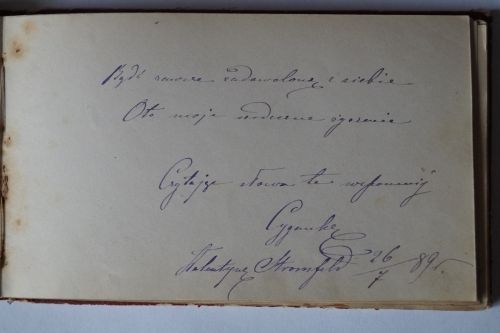 Bądź zawsze zadowoloną z siebie
Oto moje serdeczne życzenie
Czytając słowa te wspomnij
Cygankę
Walentyna Stromfeld 26/7 89 r.